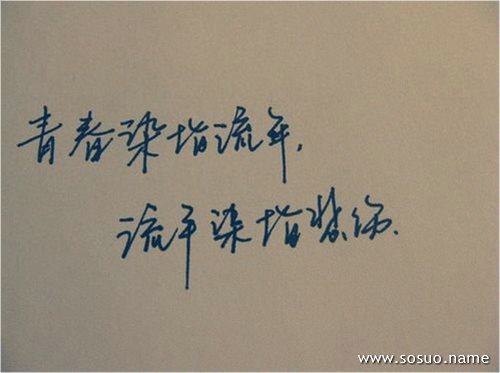 青春染指流年,
流年染指悲伤.
www.sosuo.name